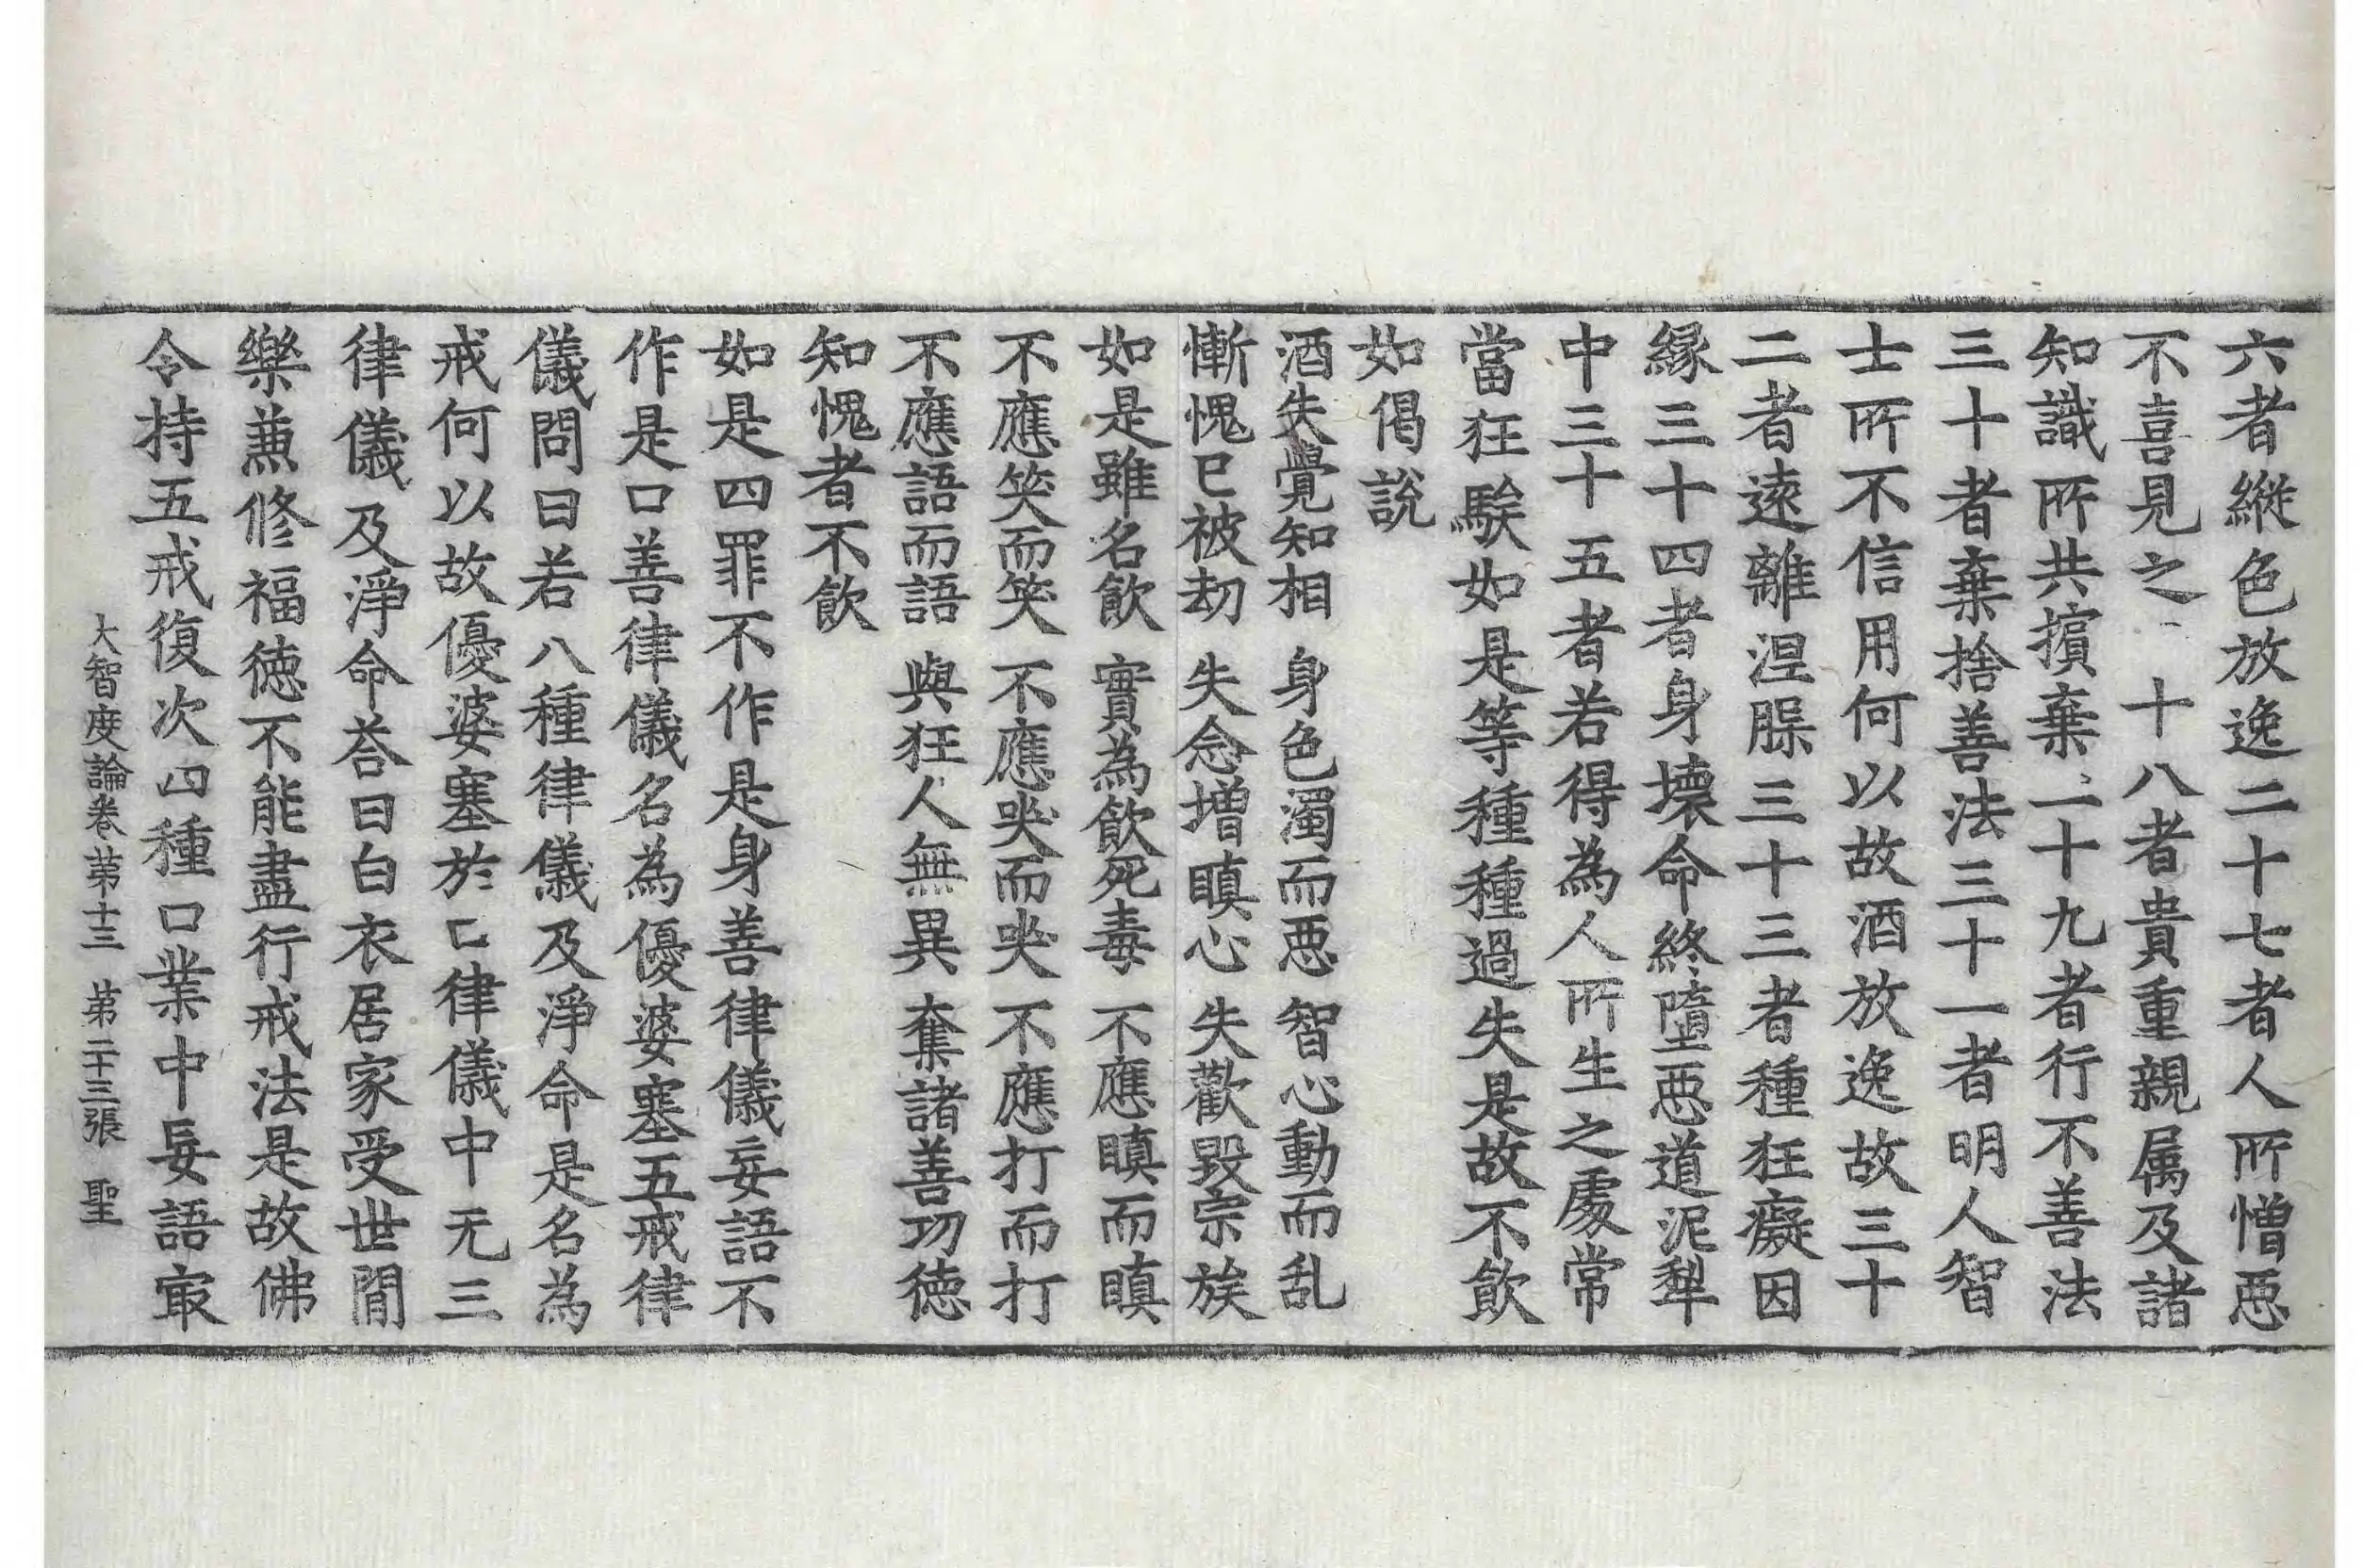 六者縱色放逸二十七者人所憎惡
不喜見之 十八者貴重親属及諸
知識所共擯棄二十九者行不善法
三十者棄捨善法三十一者明人智
士所不信用何以故酒放逸故三十
二者逺離涅槃三十三者種狂癡因
縁三十四者身壞命終墮惡道泥犁
中三十五者若得為人所生之處常
當狂騃如是等種種過失是故不飲
如偈說
酒失覺知相 身色濁而惡 智心動而乱
慚愧已被刧 失念增瞋心 失歡毀宗族
如是雖名飲 實為飲死毒 不應瞋而瞋
不應笑而笑 不應哭而哭 不應打而打
不應語而語 與狂人無異 奪諸善功徳
知愧者不飲
如是四罪不作是身善律儀妄語不
作是口善律儀名為優婆塞五戒律
儀問曰若八種律儀及淨命是名為
戒何以故優婆塞於口律儀中无三
律儀及淨命荅曰白衣居家受世間
樂兼修福徳不能盡行戒法是故佛
令持五戒復次四種口業中妄語㝡
大智度論卷第十三 第二十三張 聖